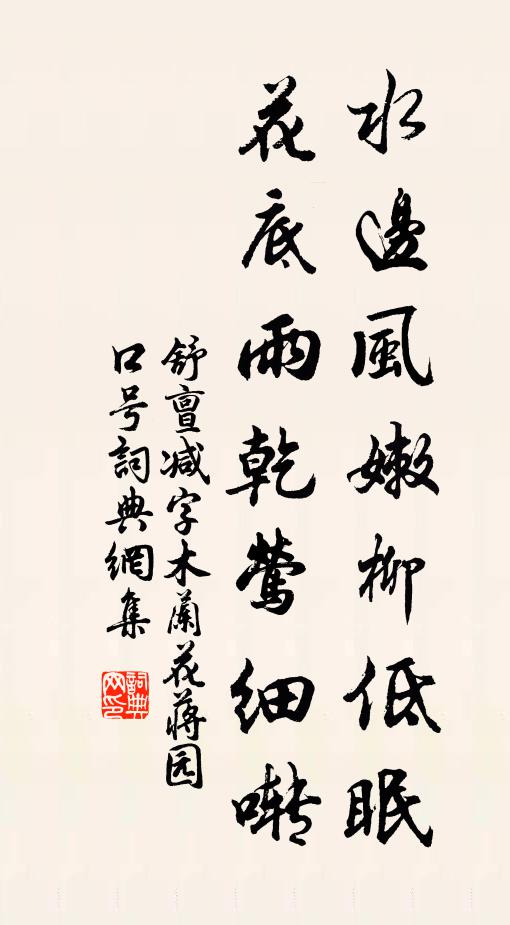 水邊風嫩柳低眠
花底雨乾鶯細啭
舒亶减字木蘭花蔣园
口号詞典網集
詞典网印